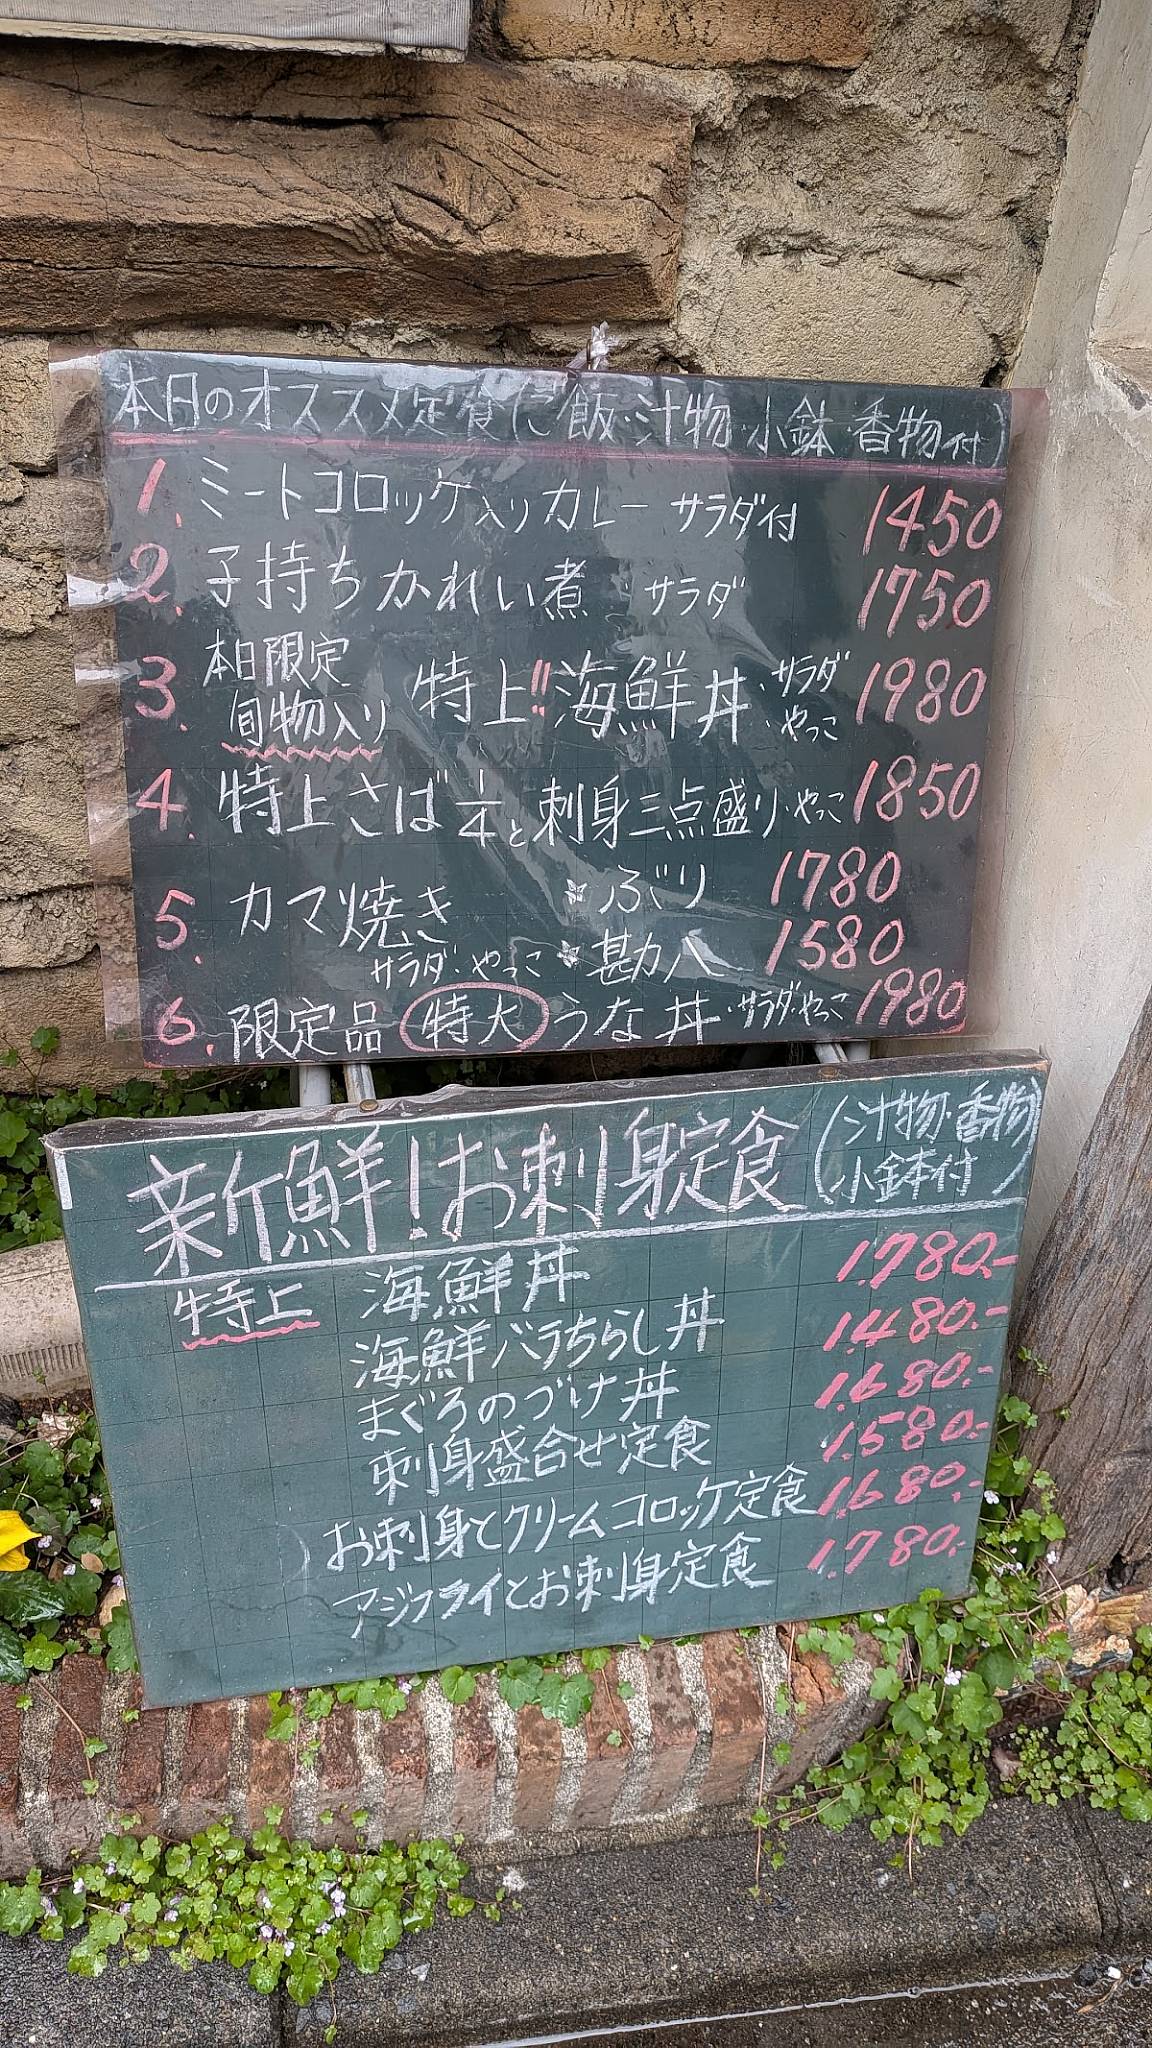 本日のオススメ定食(ご飯・汁物・小鉢・香物付)
1. ミートコロッケ入りカレー サラダ付 1450
2. 子持ちかれい煮・サラダ 1750
3. 本日限定 旬物入り 特上!!海鮮丼・サラダ・やっこ 1980
4. 特上さば1/4と刺身三点盛り・やっこ 1850
5. カマ焼き ☆ぶり 1780
サラダ・やっこ ☆勘八 1580
6. 限定品 特大 うな丼・サラダ・やっこ 1980
新鮮!お刺身定食(汁物・香物 小鉢付)
特上 海鮮丼 1.780.-
海鮮バラちらし丼 1.480.-
まぐろのづけ丼 1.680.-
刺身盛合せ定食 1.580.-
お刺身とクリームコロッケ定食 1.680.-
アジフライとお刺身定食 1.780.-